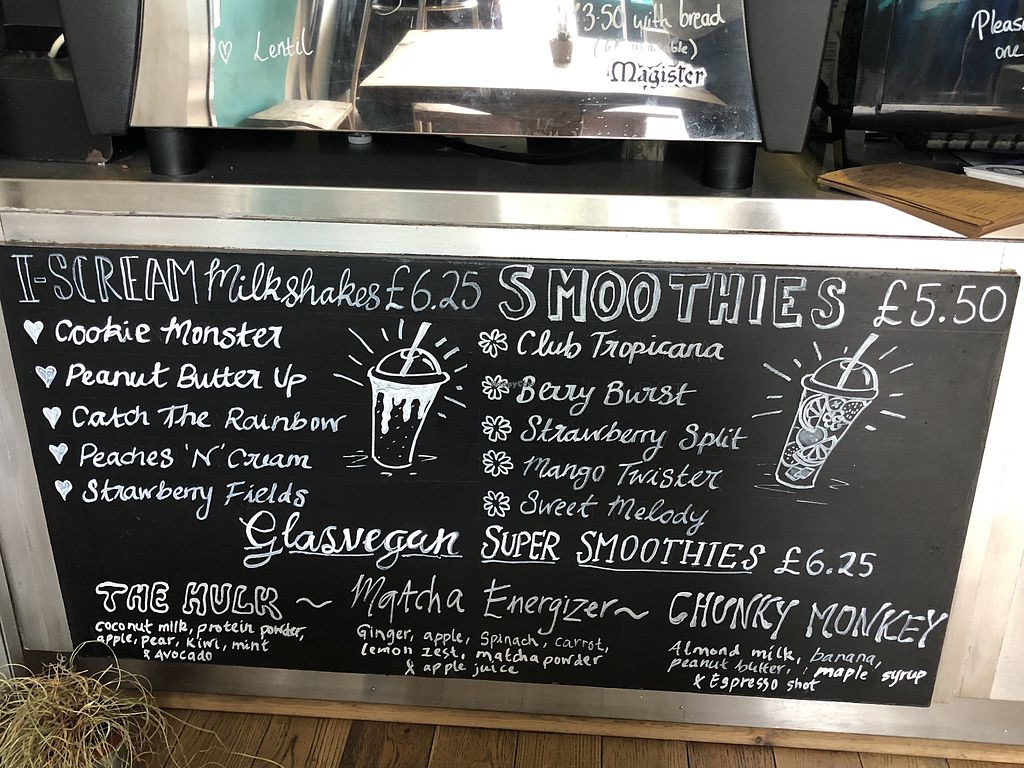 ♡ Lentil
£3.50 with bread
Magister
Please
one
I-SCREAM Milkshakes £6.25
Cookie Monster
Peanut Butter Up
Catch The Rainbow
Peaches 'N' Cream
Strawberry Fields
SMOOTHIES £5.50
Club Tropicana
Berry Burst
Strawberry Split
Mango Twister
Sweet Melody
Glasvegan SUPER SMOOTHIES £6.25
THE HULK ~
coconut milk, protein powder,
apple, pear, kiwi, mint
& Avocado
Matcha Energizer ~
Ginger, apple, Spinach, carrot,
lemon zest, matcha powder
& apple juice
CHUNKY MONKEY
Almond milk, banana,
peanut butter, maple syrup
& Espresso shot